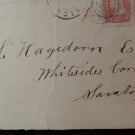 S. Hagedorn E
Whitesides Cor
Sarato